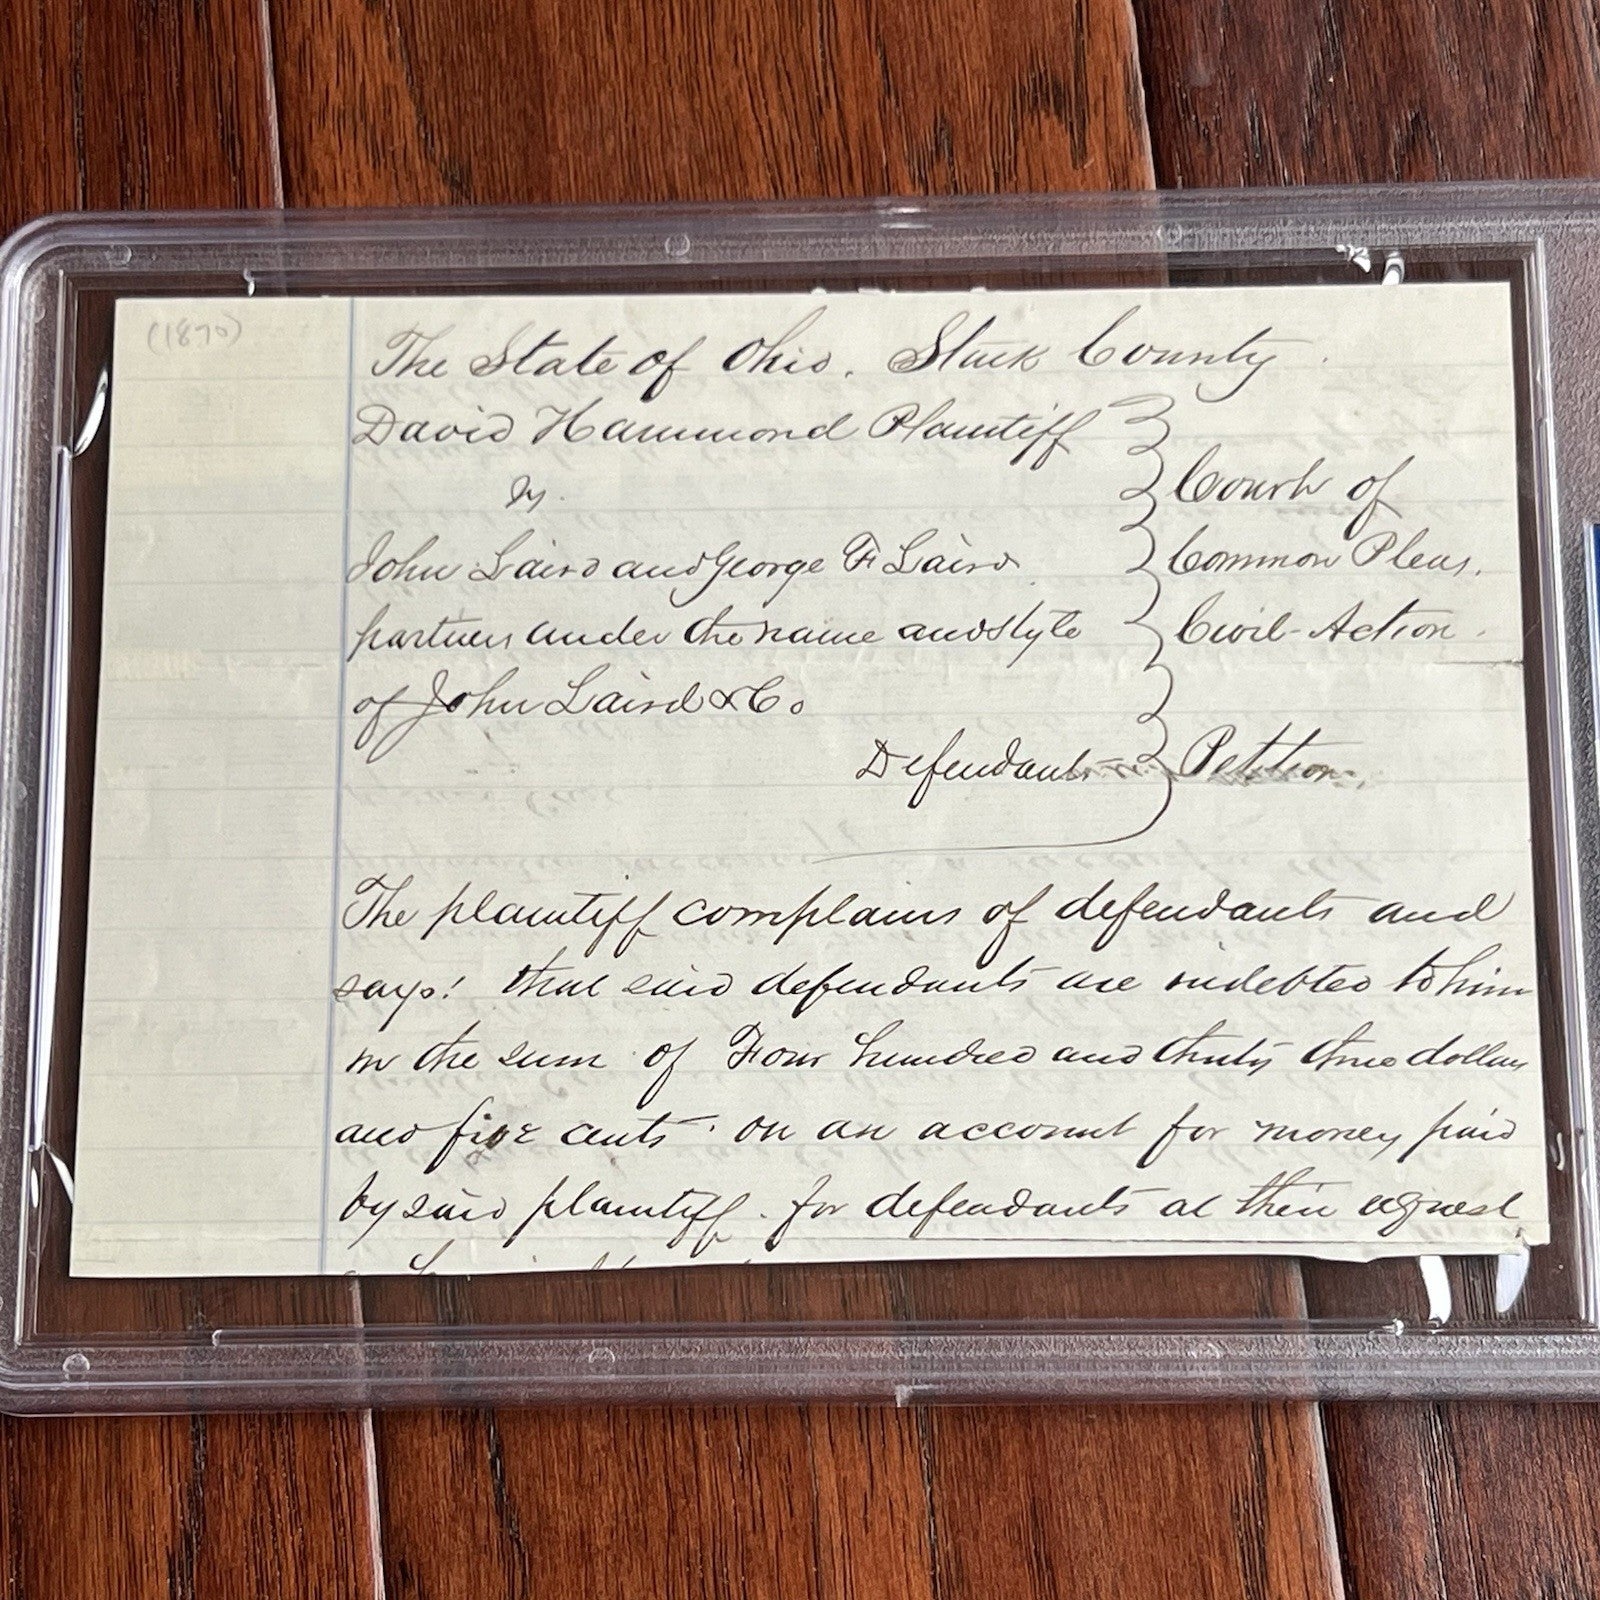 (1870)
The State of Ohio. Stark County.
David Hammond Plaintiff
vs.
John Laird and George F Laird
partners under the name and style
of John Laird & Co
Defendants
Court of
Common Pleas.
Civil-Action.
Petition.
The plaintiff complains of defendants and
says! that said defendants are indebted to him
in the sum of Four hundred and thirty three dollars
and five cents. on an account for money paid
by said plaintiff. for defendants at their request